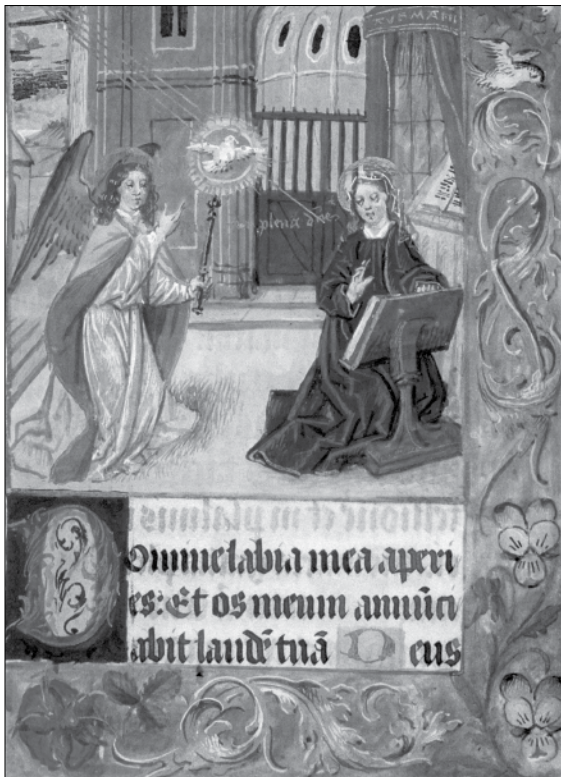 plena
Domine labia mea aperi
es: Et os meum annūci
abit laudē tuā Deus